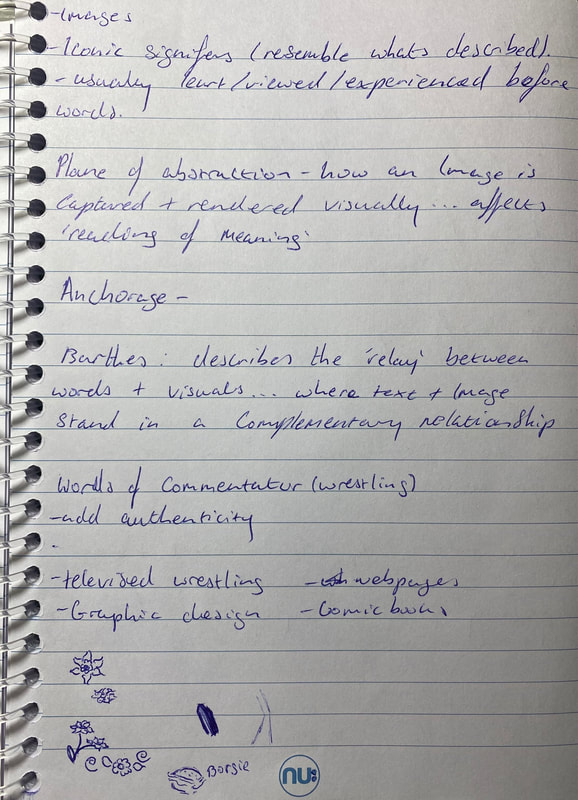 -Images
-Iconic signifers (resemble whats described).
-usually leart/viewed/experienced before
words.
Plane of abstraction - how an Image is
Captured + rendered visually... affects
'reading of meaning'
Anchorage -
Barthes: describes the 'relay' between
words + visuals... where text + Image
Stand in a Complementary relationship
Words of Commentator (wrestling)
-add authenticity
-
-televised wrestling - webpages
-Graphic design -Comic books
Borgie
nu: